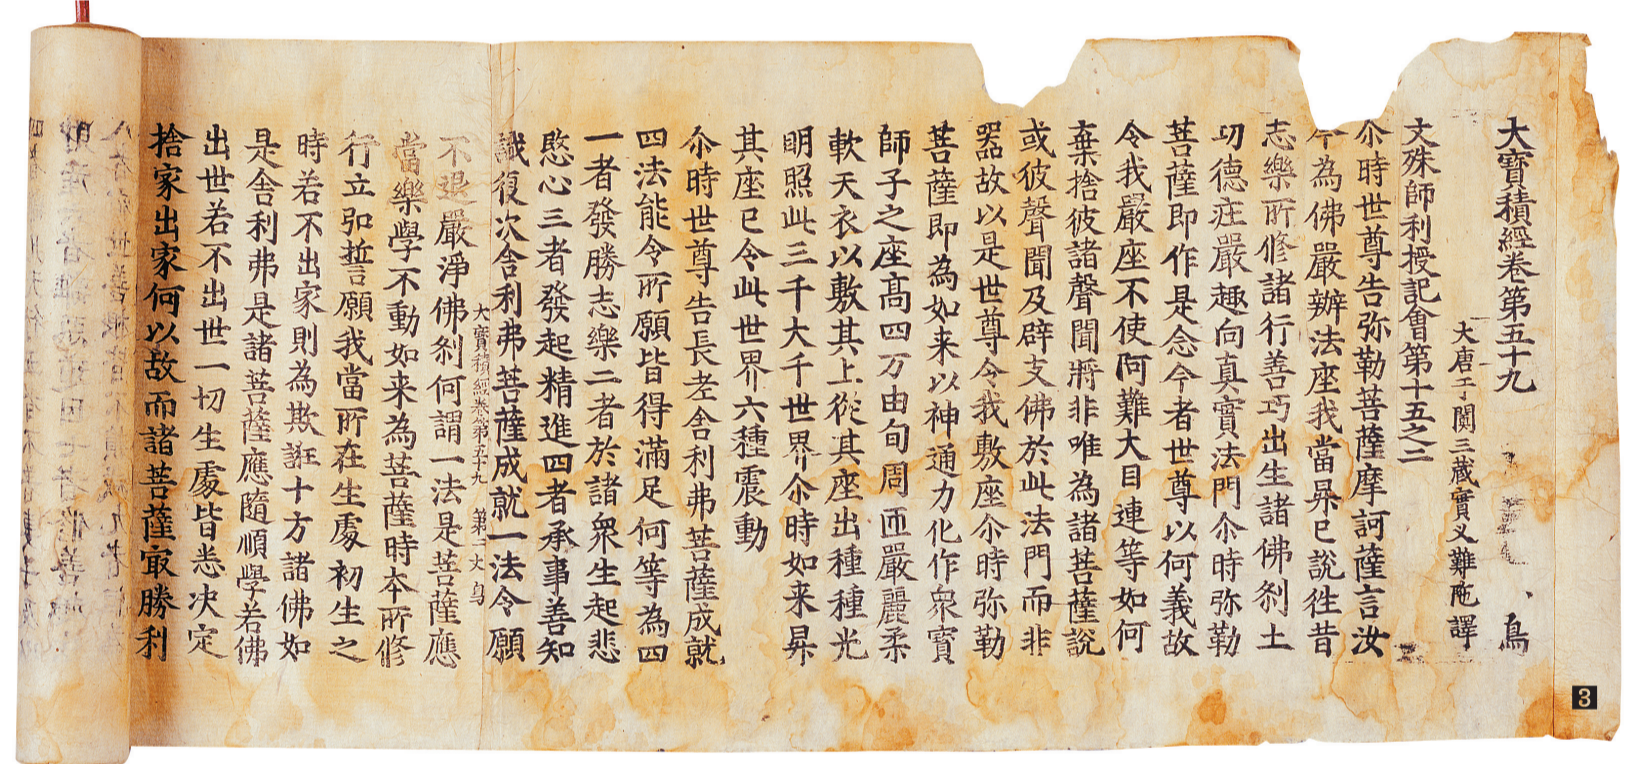 大寶積經卷第五十九 鳥
大唐于闐三藏實叉難陁譯
文殊師利授記會第十五之二
尒時世尊告弥勒菩薩摩訶薩言汝
今為佛嚴辦法座我當昇已說徃昔
志樂所修諸行善巧出生諸佛刹土
功德莊嚴趣向真實法門尒時弥勒
菩薩即作是念今者世尊以何義故
令我嚴座不使阿難大目連等如何
棄捨彼諸聲聞將非唯為諸菩薩說
或彼聲聞及辟支佛於此法門而非
器故以是世尊令我敷座尒時弥勒
菩薩即為如来以神通力化作衆寶
師子之座高四万由旬周迊嚴麗柔
軟天衣以敷其上從其座出種種光
明照此三千大千世界尒時如来昇
其座已令此世界六種震動
尒時世尊告長老舍利弗菩薩成就
四法能令所願皆得滿足何等為四
一者發勝志樂二者於諸衆生起悲
愍心三者發起精進四者承事善知
識復次舍利弗菩薩成就一法令願
大寶積經卷第五十九 第二丈 鳥
不退嚴淨佛刹何謂一法是菩薩應
當樂學不動如来為菩薩時本所修
行立弘誓言願我當所在生處初生之
時若不出家則為欺誑十方諸佛如
是舍利弗是諸菩薩應隨順學若佛
出世若不出世一切生處皆悉决定
捨家出家何以故而諸菩薩㝡勝利
3